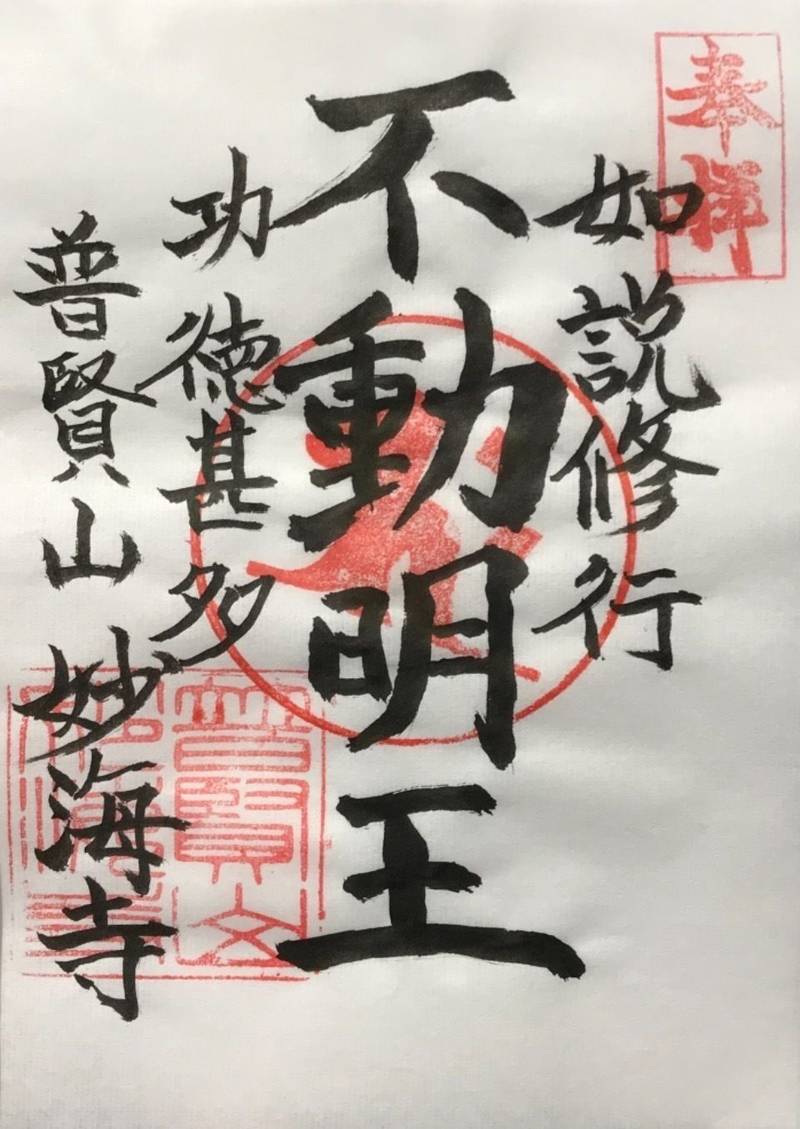 奉拝
如説修行
不動明王
功徳甚多
普賢山 妙海寺